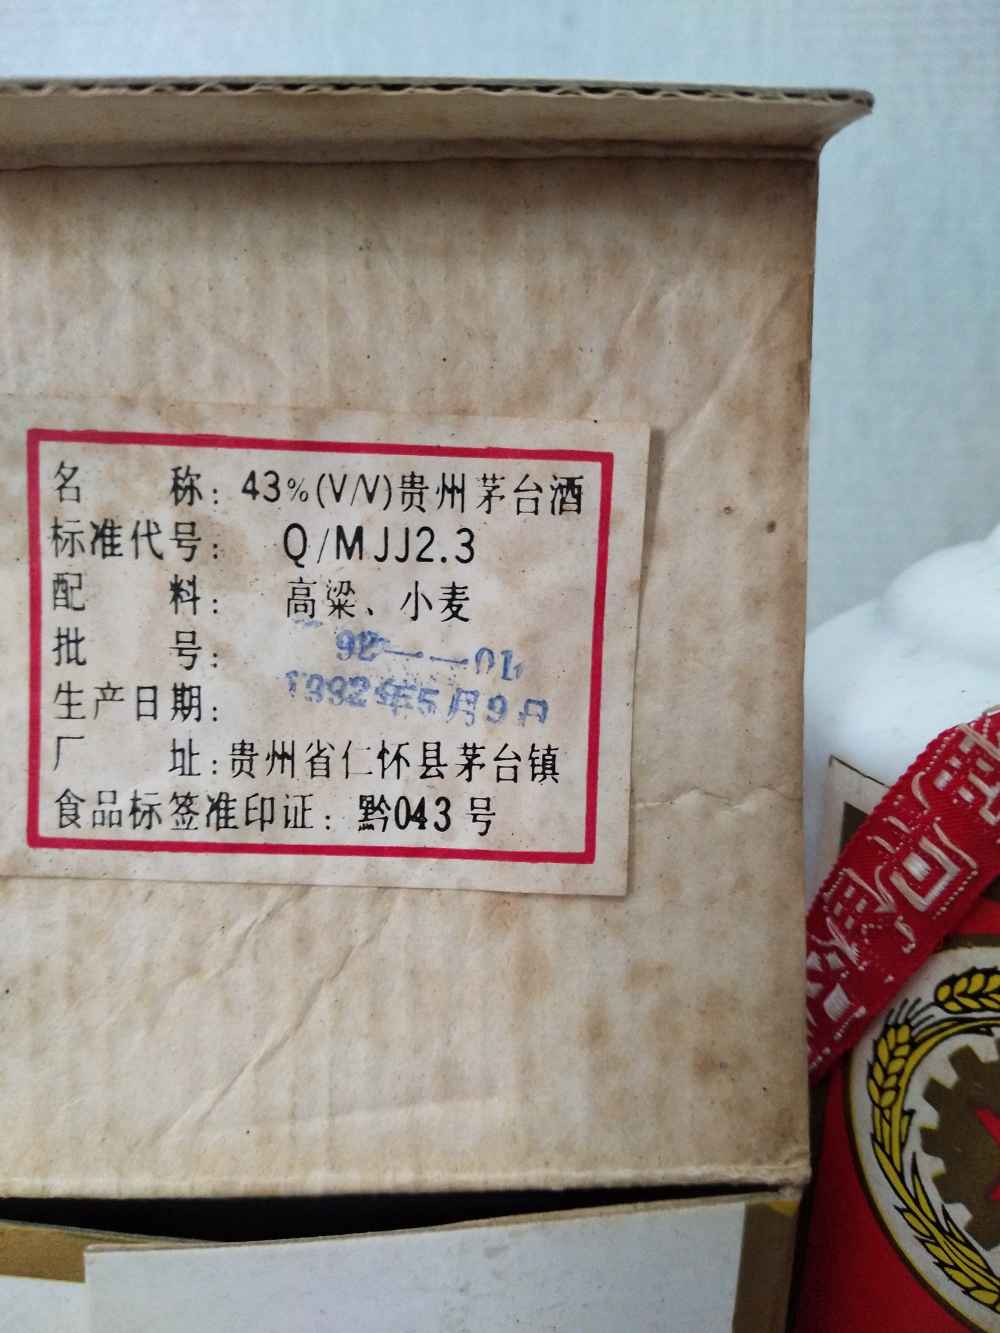 名 称: 43%(V/V)贵州茅台酒
标准代号: Q/MJJ2.3
配 料: 高粱、小麦
批 号: 92——01
生产日期: 1992年5月9日
厂 址: 贵州省仁怀县茅台镇
食品标签准印证: 黔043号